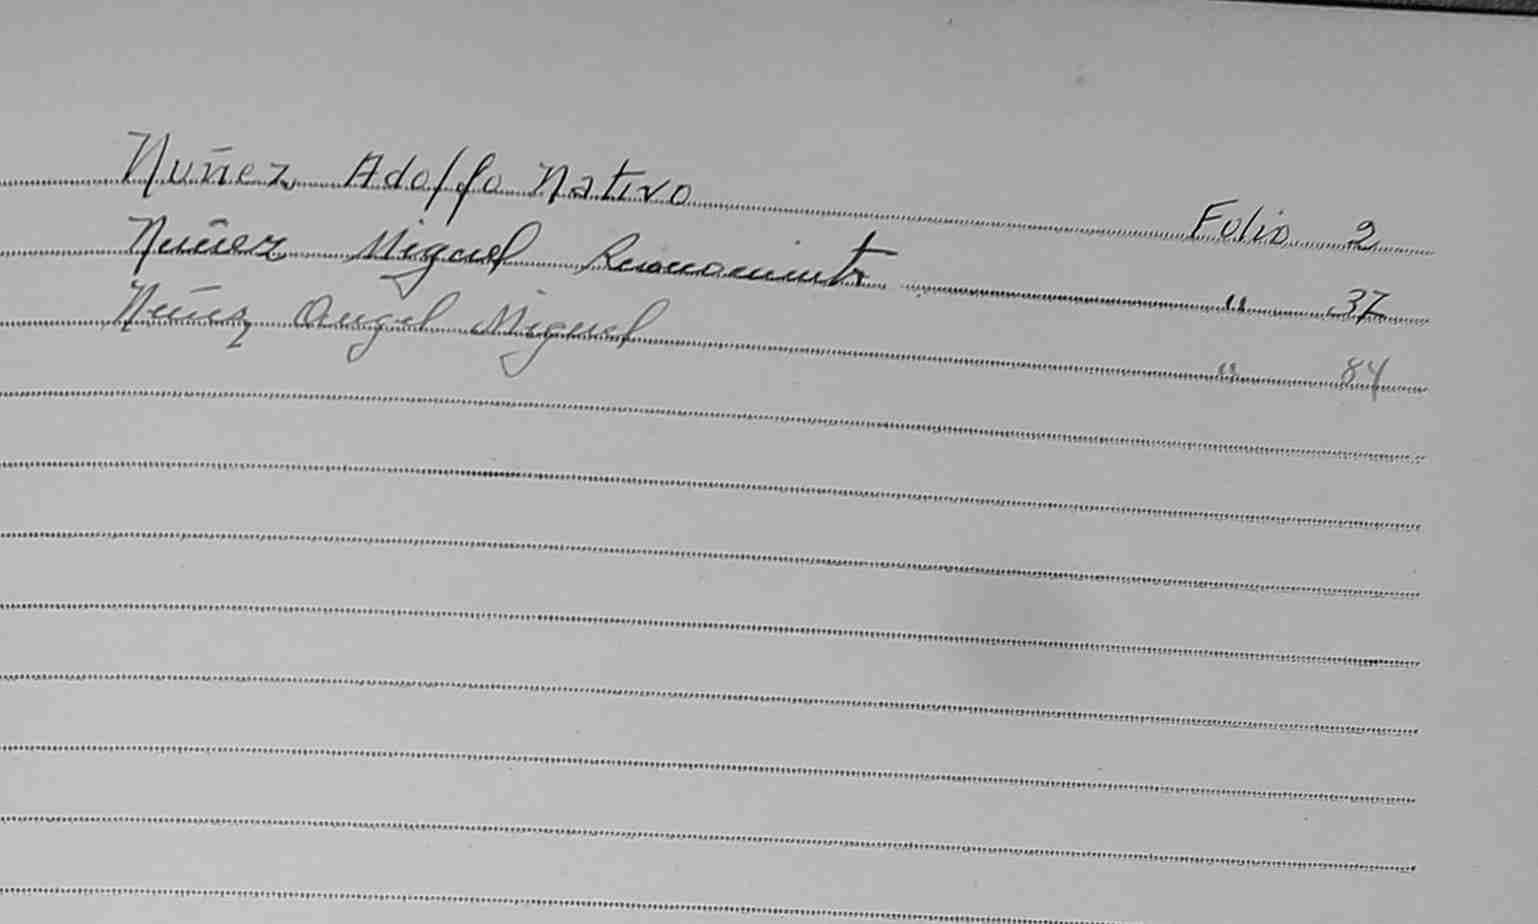 Nuñez Adolfo Nativo Folio 2
Nuñez Miguel Reconocimiento " 37
Nuñez Angel Miguel " 84